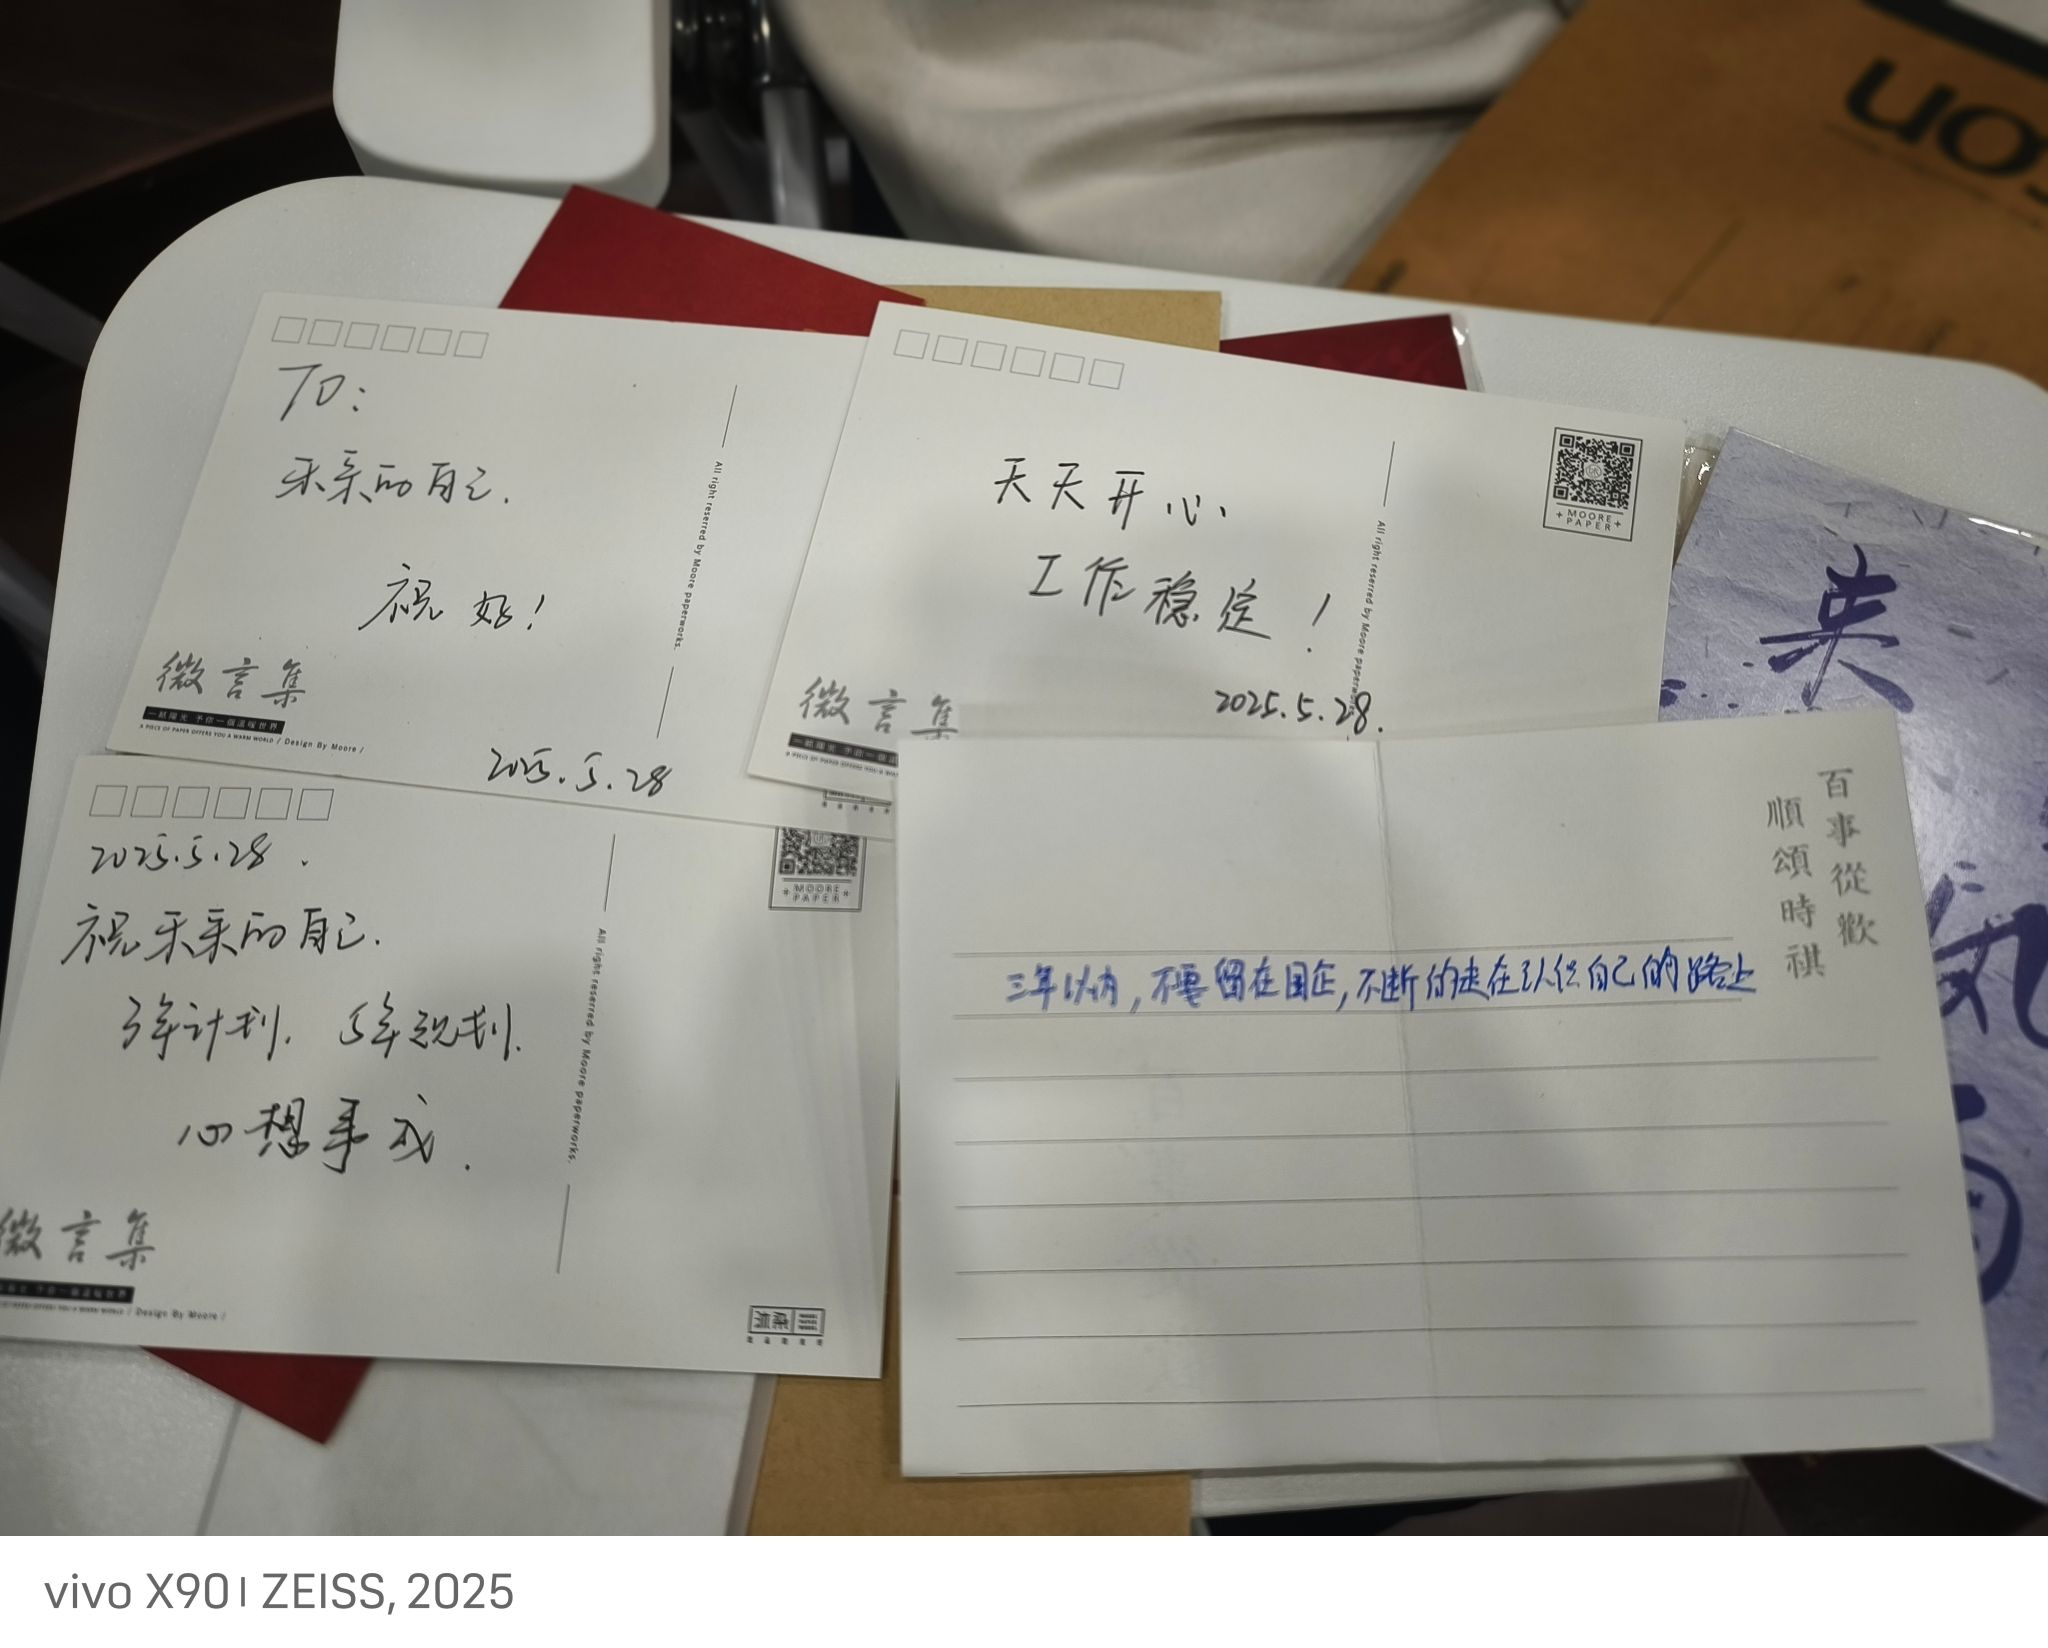 TO:
未来的自己.
祝好!
微言集
一紙陽光 予你一個溫暖世界
A PIECE OF PAPER OFFERS YOU A WARM WORLD / Design By Moore /
2025.5.28
All right reserred by Moore paperworks.
天天开心、
工作稳定!
2025.5.28.
微言集
All right reserred by Moore paperworks.
MOORE
PAPER
2025.5.28.
祝未来的自己.
3年计划. 5年规划.
心想事成.
微言集
/ Design By Moore /
All right reserred by Moore paperworks.
MOORE
PAPER
百事從歡
順頌時祺
三年以内,不要留在国企,不断的走在认识自己的路上
vivo X90 | ZEISS, 2025